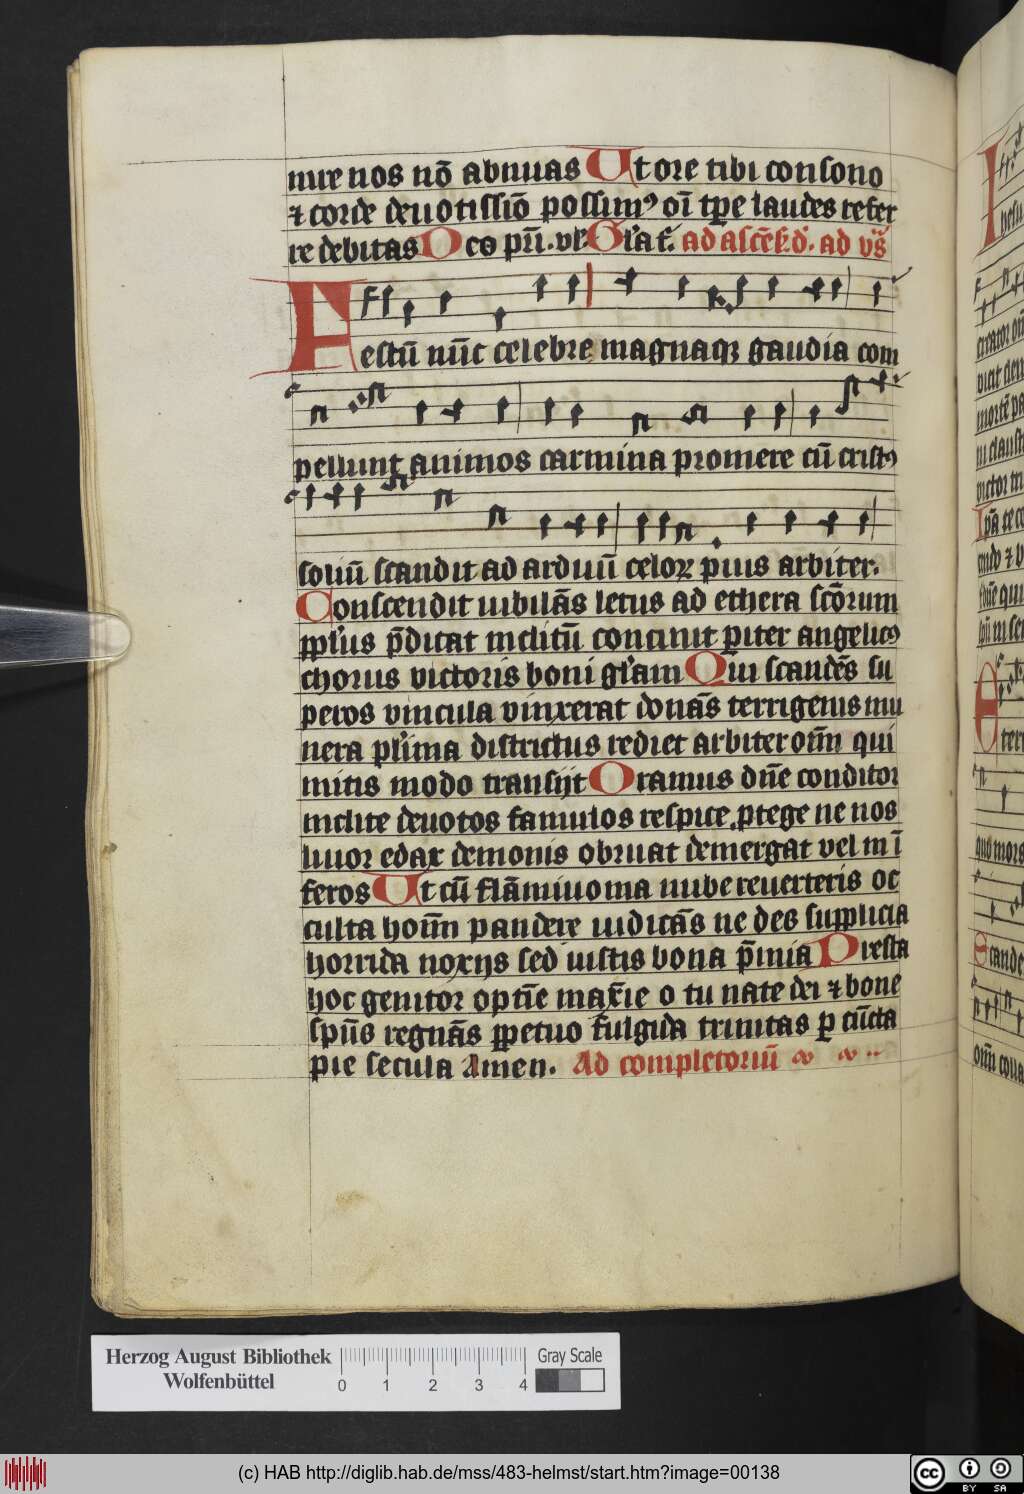 nire nos nō abnuas Ut ore tibi consono
⁊ corde deuotissiō possimꝰ oī tꝑe laudes refer
re debitas Deo pr̄i. vl' Gl'a t'. ad ascēs. dō. ad vs̄
Festū nūc celebre magnaqꝫ gaudia com
pellunt animos carmina promere cū cristꝰ
soliū scandit ad arduū celoꝝ pius arbiter.
Conscendit iubilās letus ad ethera sc̄orum
ppl'us p̄dicat inclitū concinit piter angelicꝰ
chorus victoris boni gl'am Qui scandēs su
peros vincula vinxerat donās terrigenis mu
nera pl'ima districtus rediet arbiter oīm qui
mitis modo transijt Oramus dn̄e conditor
inclite deuotos famulos respice ꝓtege ne nos
liuor edax demonis obruat demergat vel in ī
feros Ut cū flāmiuoma nube reuerteris oc
culta hoīm pandere iudicās ne des supplicia
horrida noxijs sed iustis bona p̄mia Presta
hoc genitor optīe max̄ie o tu nate dei ⁊ bone
spūs regnās ꝑpetuo fulgida trinitas ꝑ cūcta
pie secula Amen. Ad completoriū
Herzog August Bibliothek
Wolfenbüttel
0 1 2 3 4
Gray Scale
(c) HAB http://diglib.hab.de/mss/483-helmst/start.htm?image=00138
cc BY SA